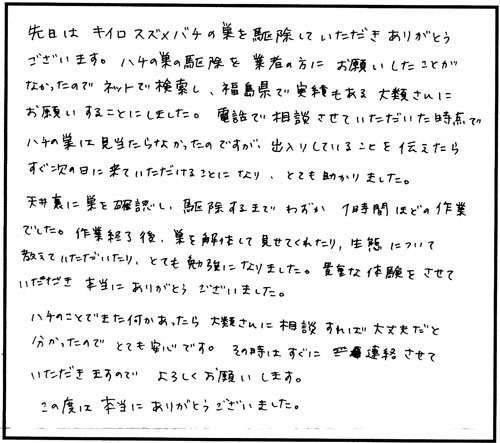 先日は キイロスズメバチの巣を駆除していただき ありがとう
ございます。 ハチの巣の駆除を 業者の方に お願いしたことが
なかったので ネットで検索し、福島県で実績もある 大類さんに
お願いすることにしました。 電話で相談させていただいた時点で
ハチの巣は見当たらなかったのですが、出入りしていることを伝えたら
すぐ次の日に来ていただけることになり、とても助かりました。
天井裏に巣を確認し、駆除するまで わずか 1時間ほどの作業
でした。作業終了後、巣を解体して見せてくれたり、生態について
教えていただいたり、とても勉強になりました。貴重な体験をさせて
いただき 本当にありがとう ございました。
ハチのことでまた何かあったら 大類さんに相談すれば大丈夫だと
分かったので とても安心です。 その時はすぐに 連絡させて
いただきますので よろしくお願いします。
この度は 本当に ありがとうございました。